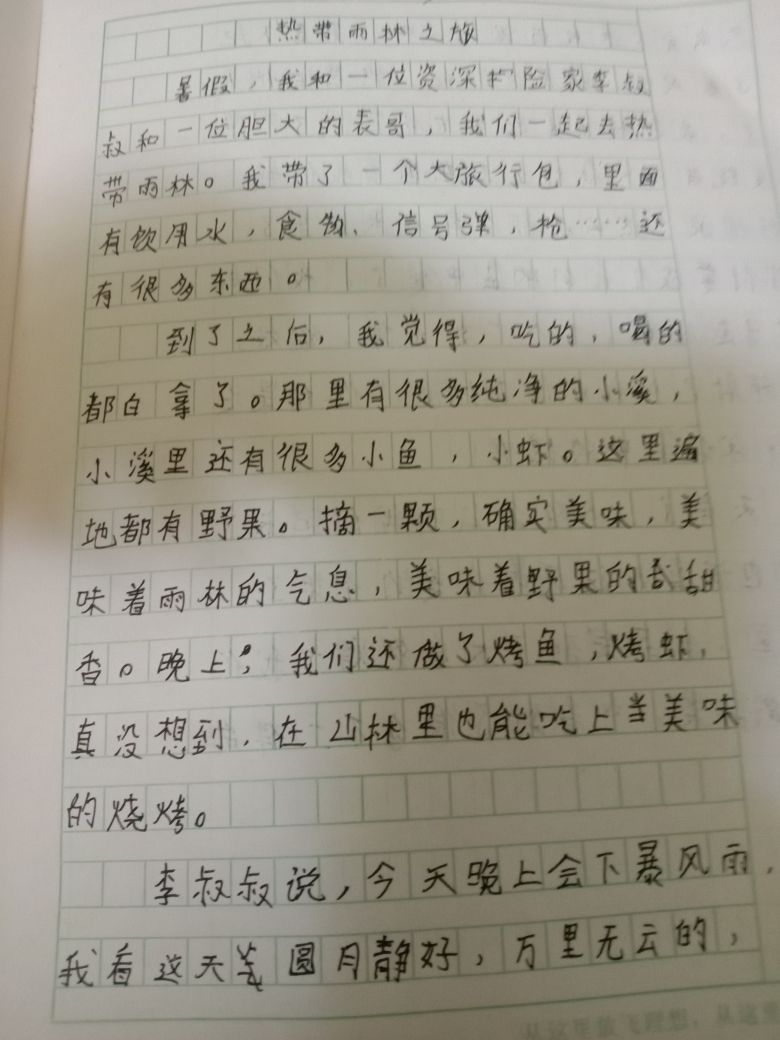 热带雨林之旅
暑假，我和一位资深探险家李叔
叔和一位胆大的表哥，我们一起去热
带雨林。我带了一个大旅行包，里面
有饮用水，食物、信号弹，枪……还
有很多东西。
到了之后，我觉得，吃的，喝的
都白拿了。那里有很多纯净的小溪，
小溪里还有很多小鱼，小虾。这里遍
地都有野果。摘一颗，确实美味，美
味着雨林的气息，美味着野果的甜
香。晚上，我们还做了烤鱼，烤虾，
真没想到，在山林里也能吃上当美味
的烧烤。
李叔叔说，今天晚上会下暴风雨，
我看这天 圆月静好，万里无云的，
从这里放飞理想，从这里